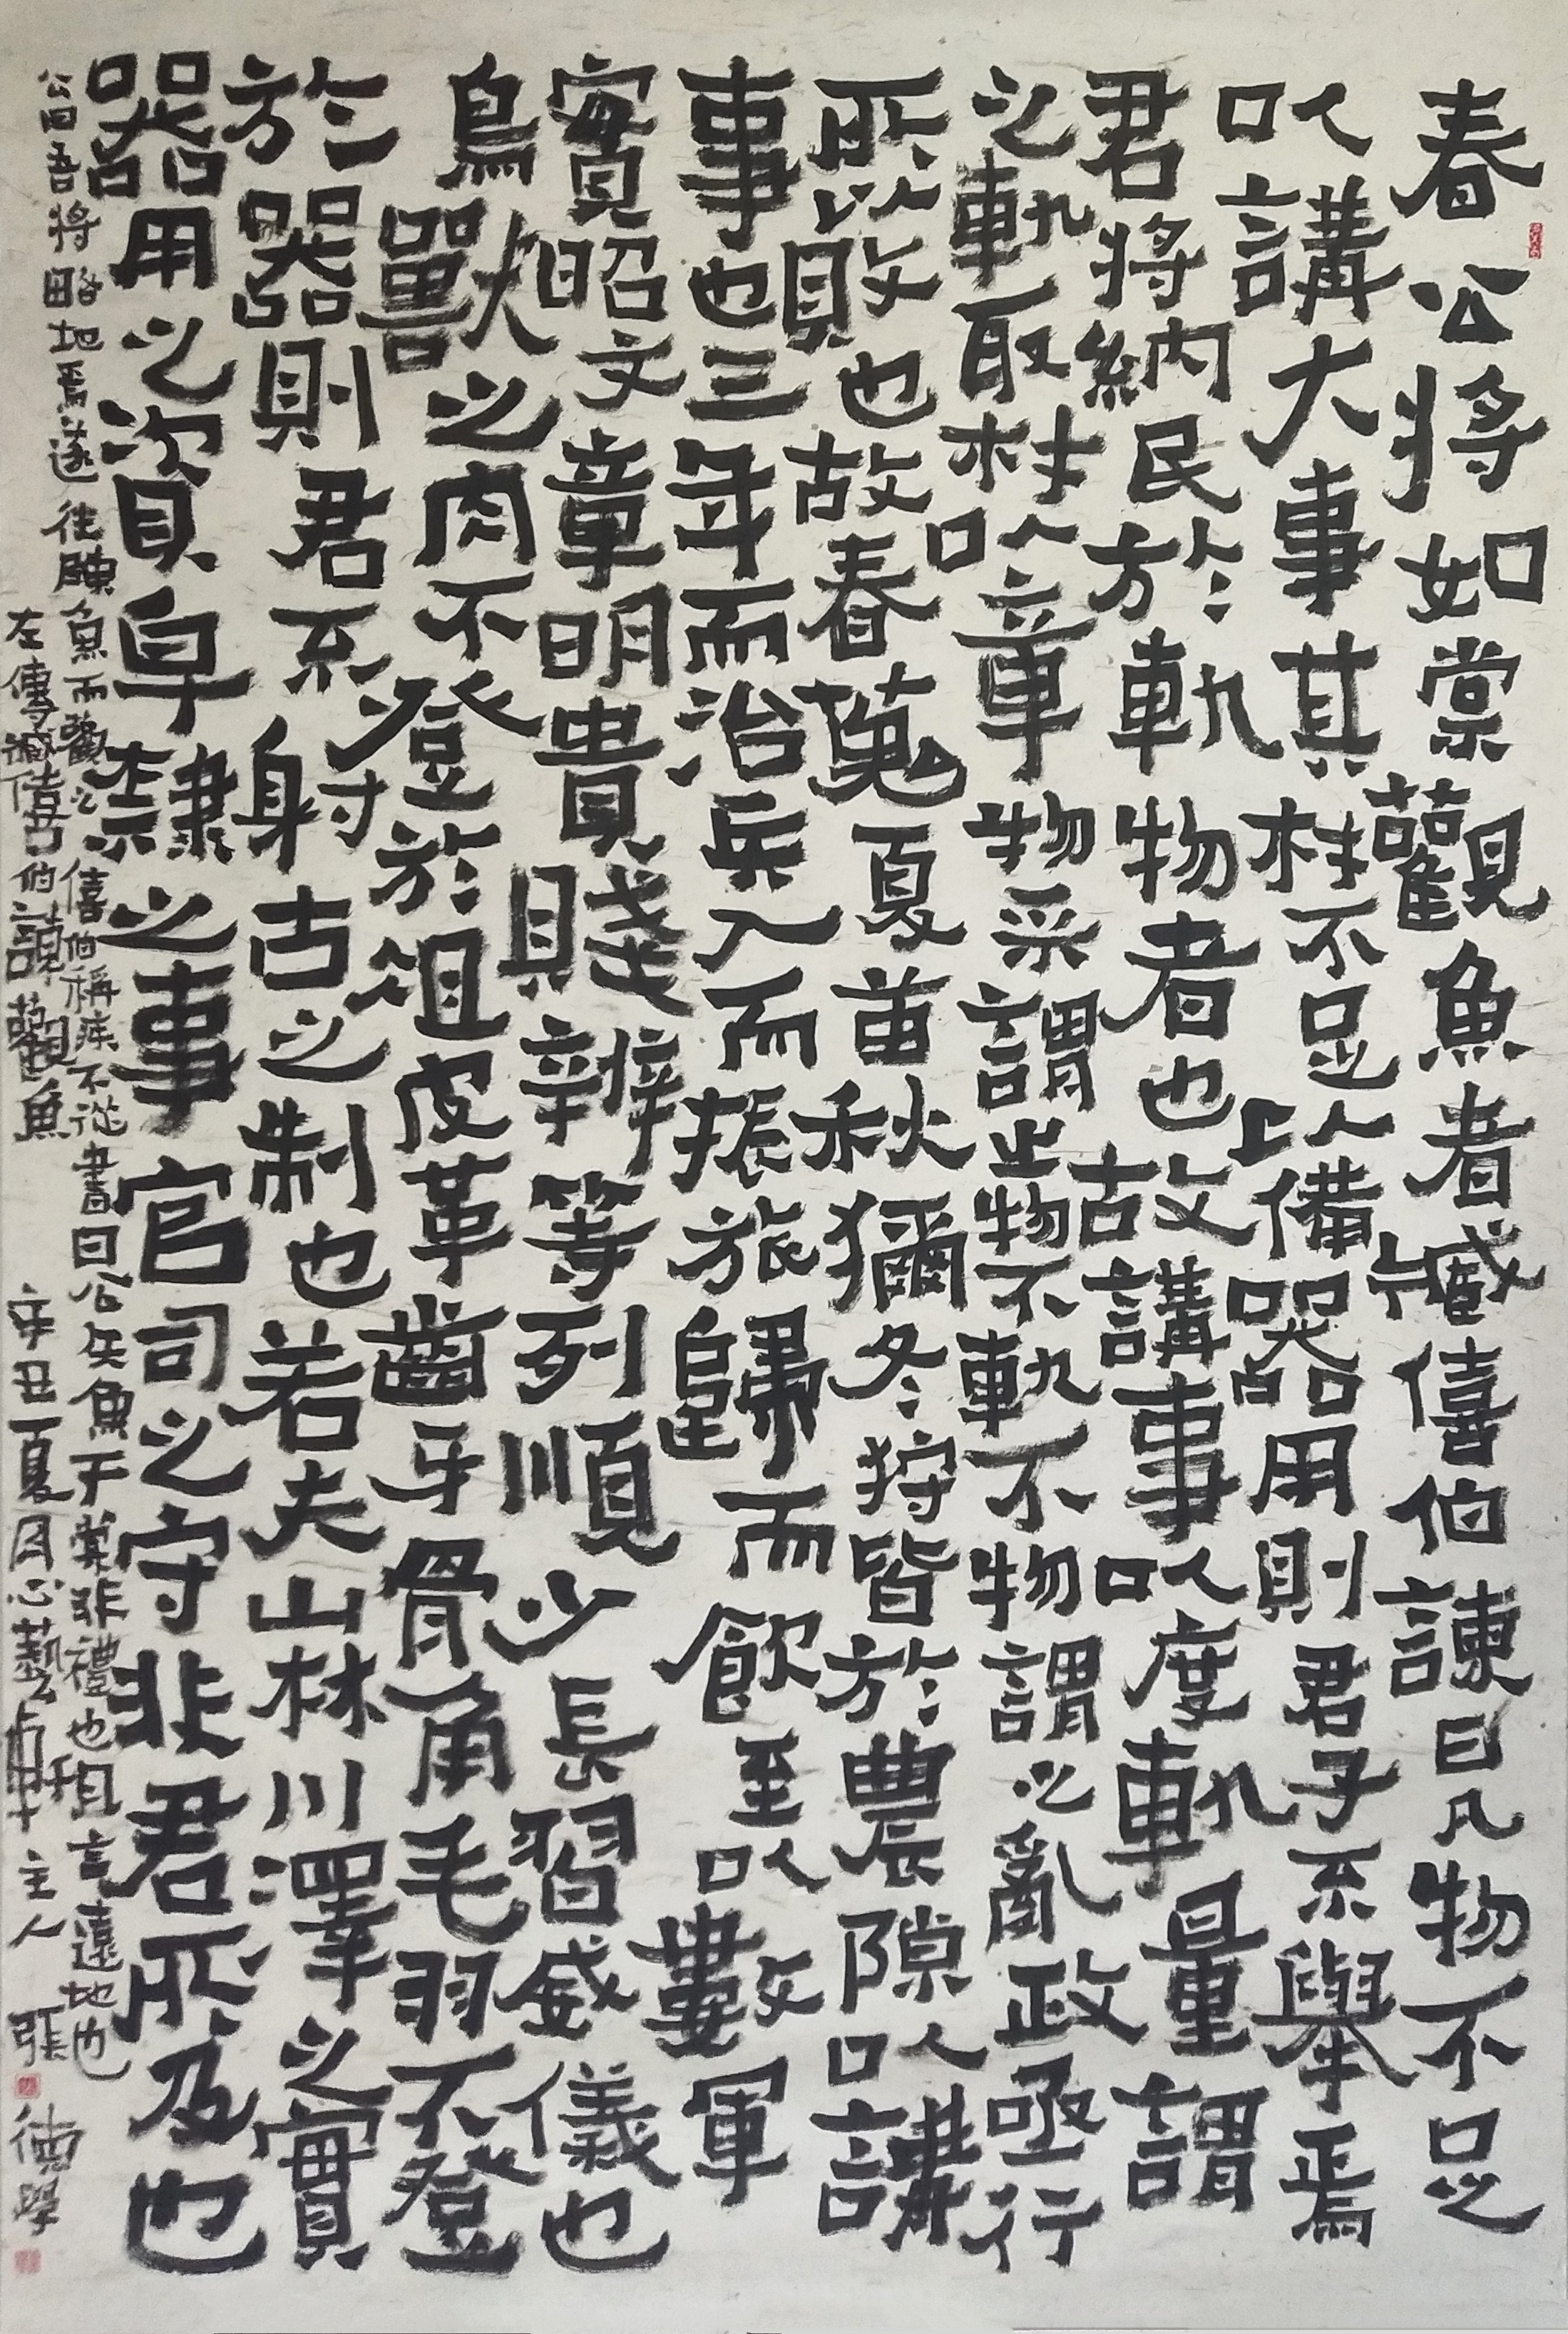 春公将如棠觀魚者臧僖伯諫曰凡物不足
以講大事其材不足以備器用則君子不舉焉
君将納民於軌物者也故講事以度軌量謂
之軌取材以章物采謂之物不軌不物謂之亂政亟行
所以敗也故春蒐夏苗秋獮冬狩皆於農隙以講
事也三年而治兵入而振旅歸而飲至以數軍
實昭文章明貴賤辨等列順少長習威儀也
鳥獸之肉不登於俎皮革齒牙骨角毛羽不登
於器則君不射古之制也若夫山林川澤之實
器用之資皁隸之事官司之守非君所及也
公曰吾将略地焉遂往陳魚而觀之僖伯稱疾不從書曰公矢魚于棠非禮也且言遠地也
左傳臧僖伯諫觀魚 辛丑夏月心藝主人 張德學